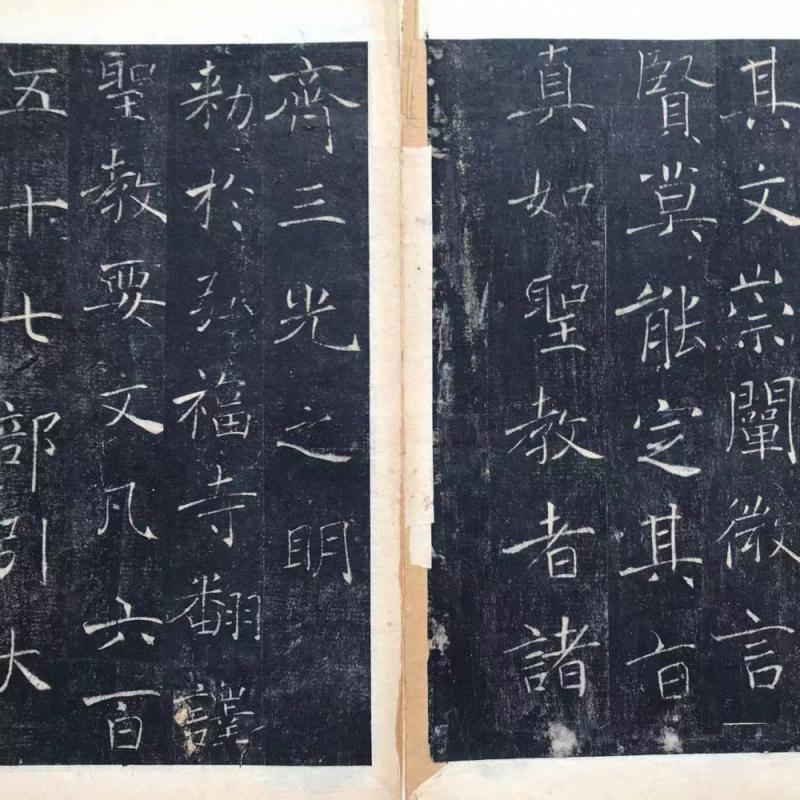 其文崇闡微言
賢莫能定其旨
真如聖教者諸
齊三光之明
勅於弘福寺翻譯
聖教要文凡六百
五十七部引大